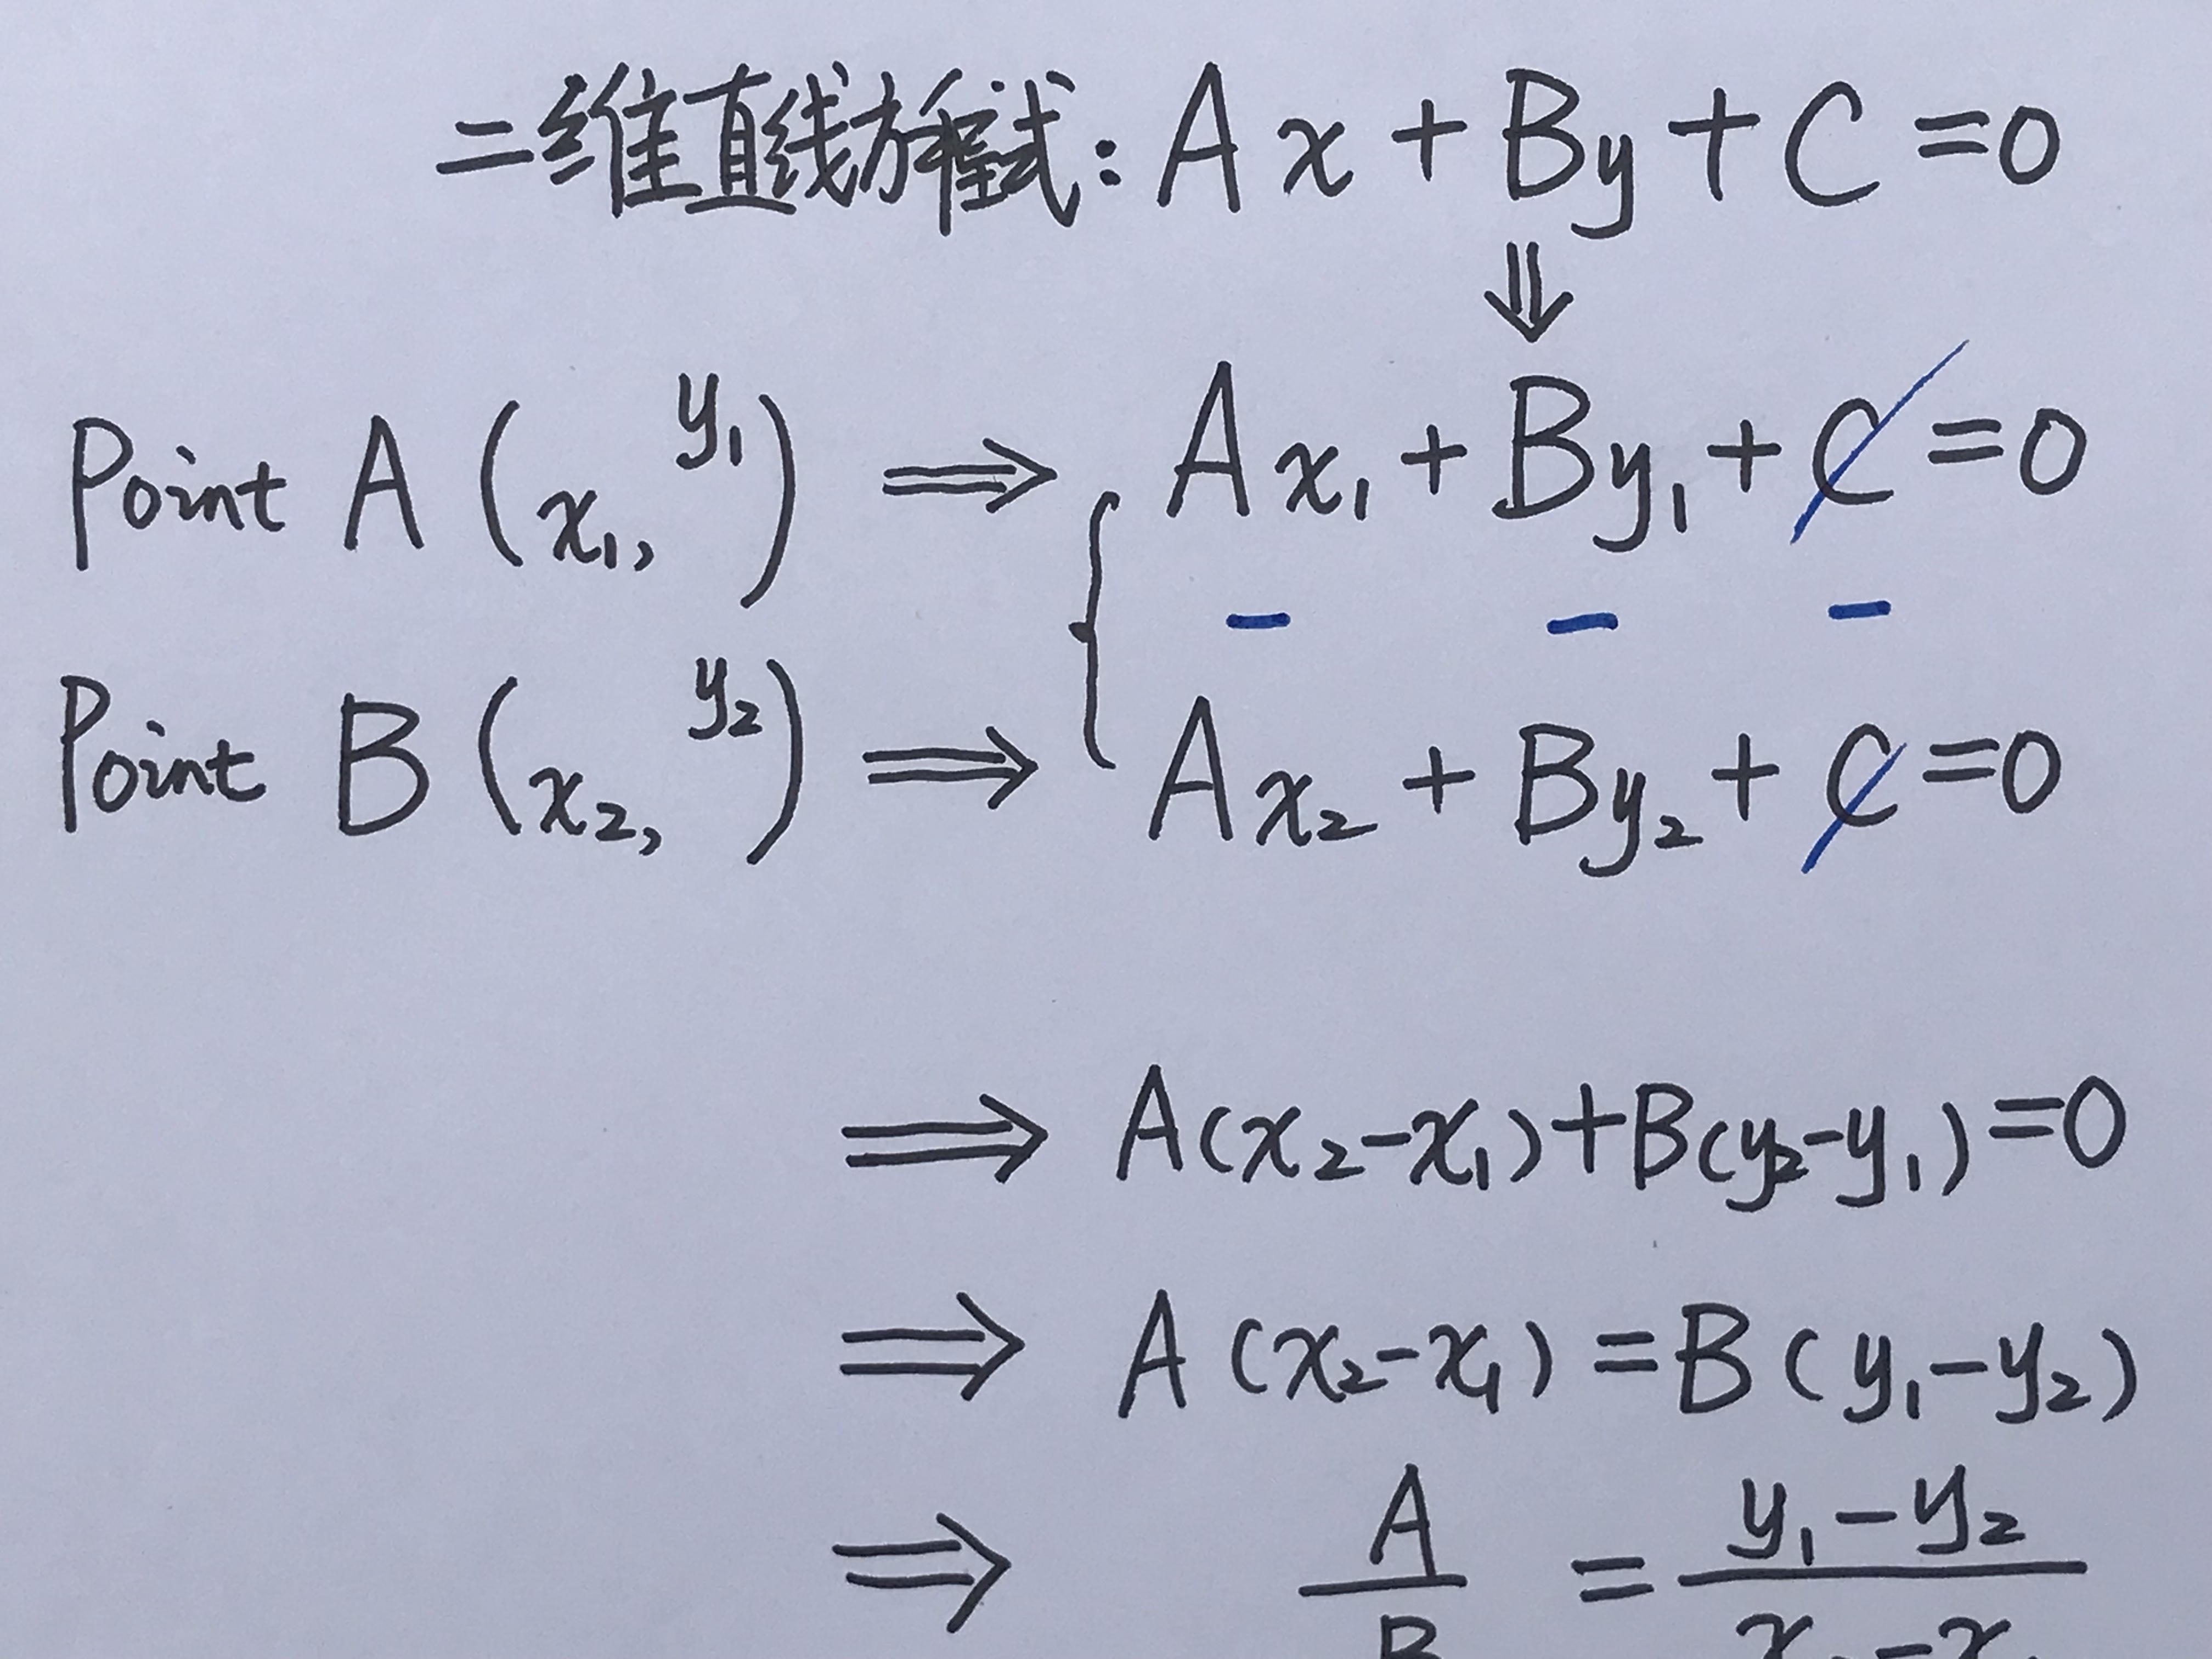 二维直线方程式: Ax + By + C = 0
⇓
Point A (x₁, y₁) ⇒ Ax₁ + By₁ + C = 0
− − −
Point B (x₂, y₂) ⇒ Ax₂ + By₂ + C = 0
⇒ A(x₂-x₁)+B(y₂-y₁)=0
⇒ A(x₂-x₁)=B(y₁-y₂)
⇒ A/B = (y₁-y₂)/